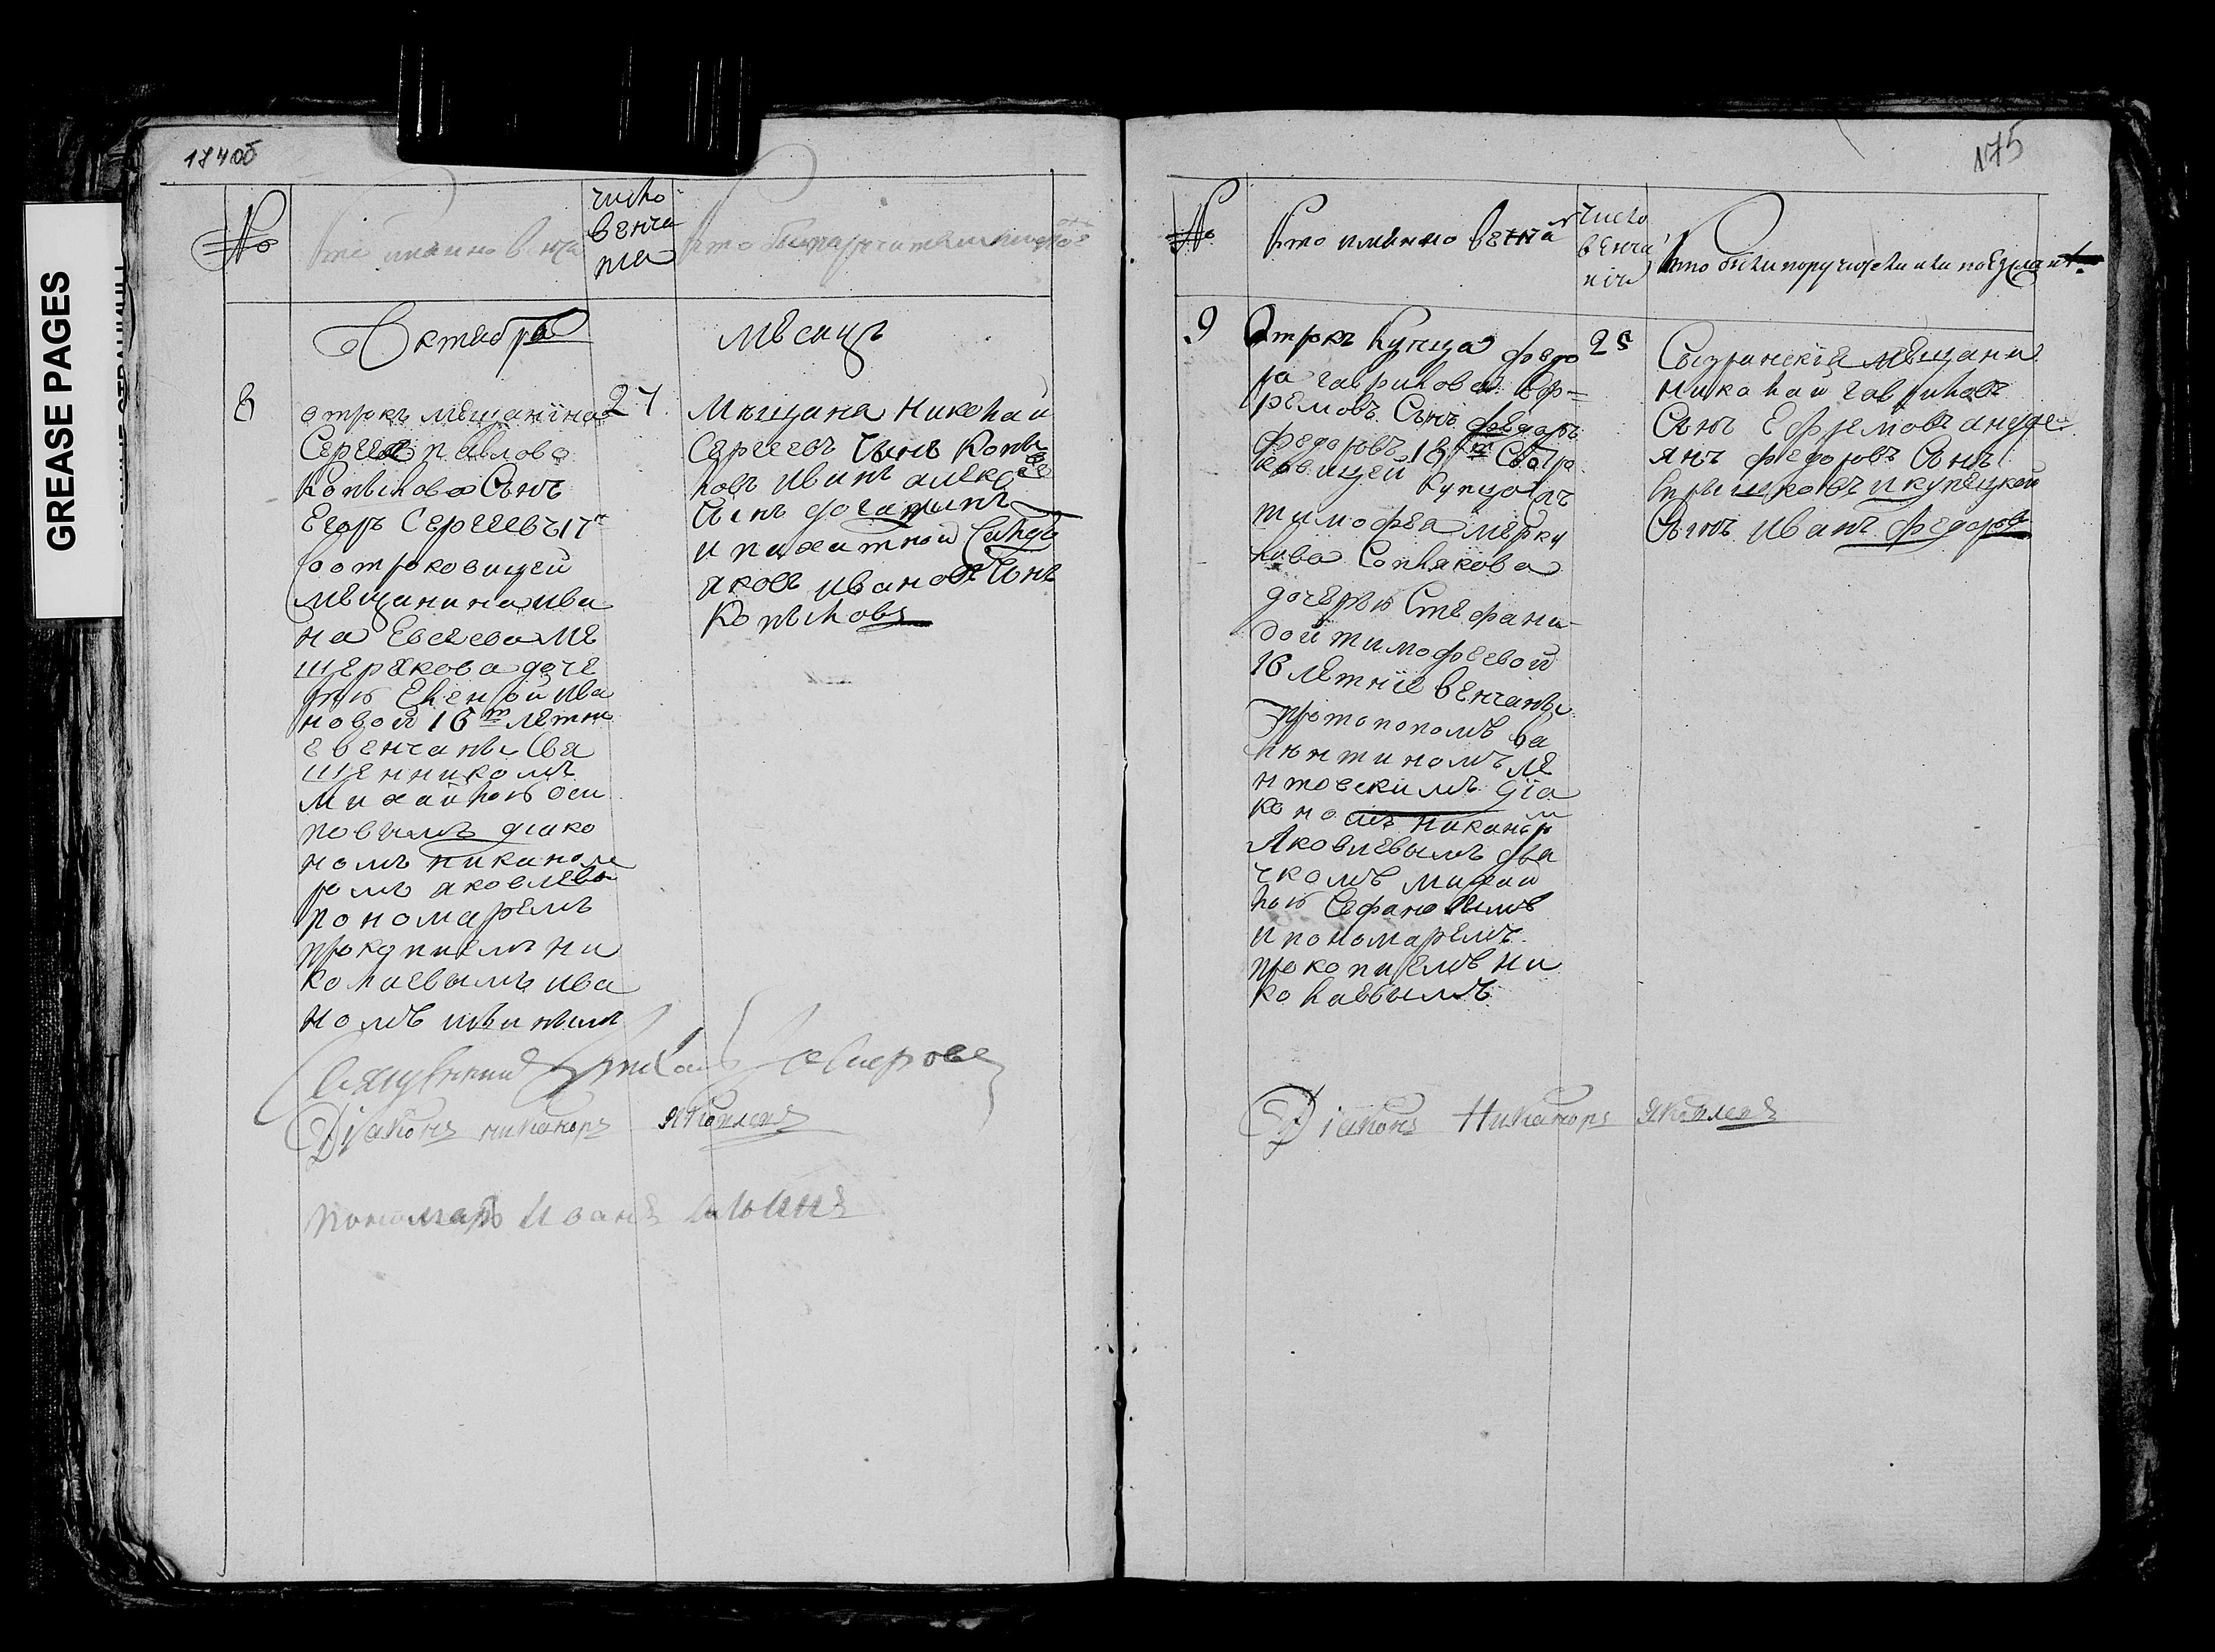 GREASE PAGES
174об
№
Кто имянно венча
число
венча
ния
Кто были поручители
Октябрь
месяцъ
8
отрокъ мещанина
Сергея павлова
Копылова Сынъ
Егоръ Сергеевъ 17т
Соотроковицей
мещанина ива
на Евсеева ме
щерякова доче
рью Еленой ива
новой 16т летни
е венчаны свя
щенникомъ
михаиломъ оси
повымъ диако
номъ никано
ромъ яковлевы
пономаремъ
прокопиемъ ни
колаевымъ ива
номъ ильинымъ
27
мещана николай
Сергеевъ Сынъ Копы
ловъ иванъ алексее
Сынъ
и пахатной Солдатъ
яковъ ивановъ Сынъ
Копыловъ
Священникъ
Діаконъ никаноръ яковлевъ
пономарь Иванъ ильинъ
175
№
Кто имянно венча
число
венча
нія
Кто были поручители или поезжан
9
Отрокъ купца федо
ра гаврилова Еф=
ремовъ Сынъ федоръ
федоровъ 18т Сотро
ковицей купца
тимофея мерку
лова Соплякова
дочерью Стефани
дой тимофеевой
16 летніе венчаны
протопопомъ ва
лентиномъ ле
нтовскимъ діа
кономъ никанор
Яковлевымъ дья
чкомъ михай
лой Стефановымъ
и пономаремъ
прокопиемъ ни
колаевымъ
25
Сызранскія мещани
николай гавриловъ
Сынъ Ефремовъ
янъ федоровъ Сынъ
и купецкой
Сынъ иванъ федоровъ
Діаконъ Никаноръ яковлевъ